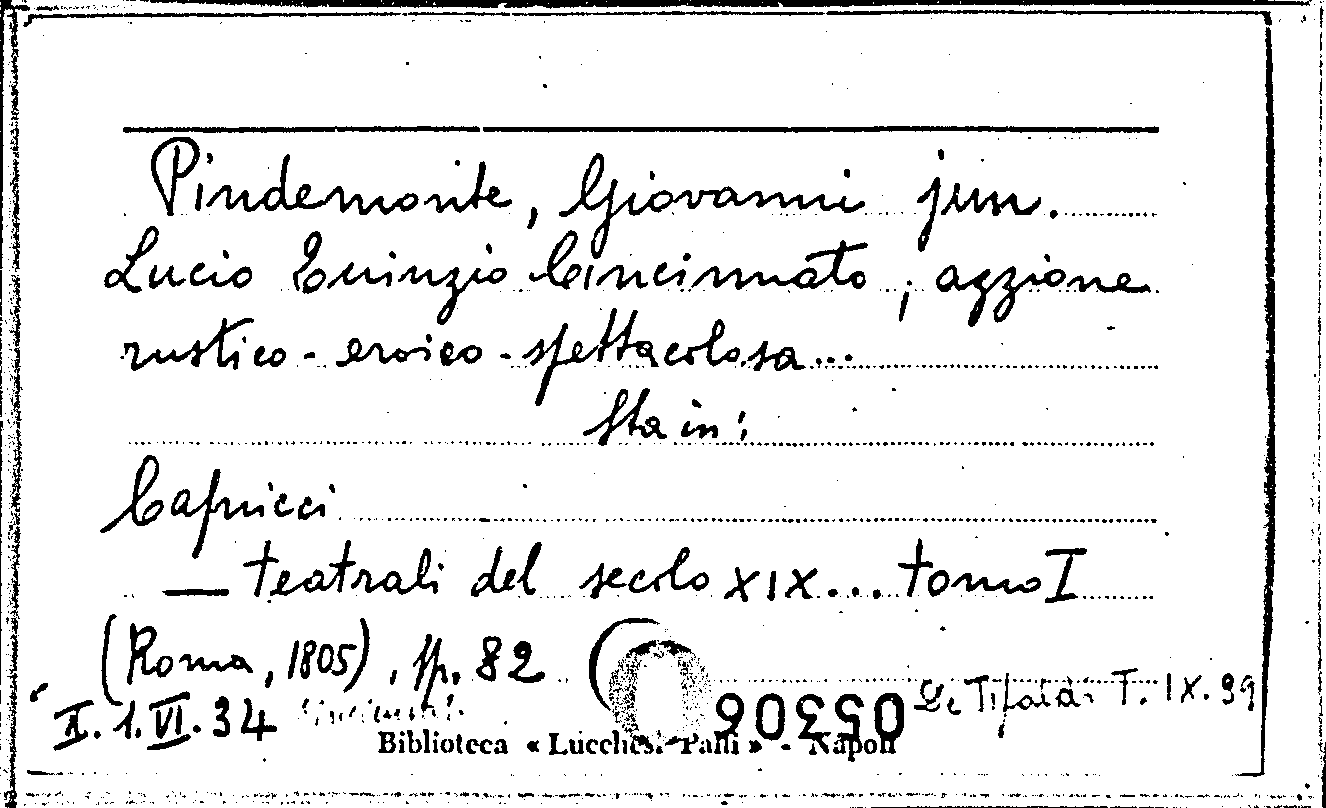 Pindemonte, Giovanni jun.
Lucio Quinzio Cincinnato, azzione
rustico-eroico-spettacolosa...
Sta in:
Capricci
— teatrali del secolo XIX... tomo I
(Roma, 1805), pp. 82
II. 1. VI. 34 De Tifaldi T. IX. 39
Biblioteca « Lucchesi Palli » - Napoli